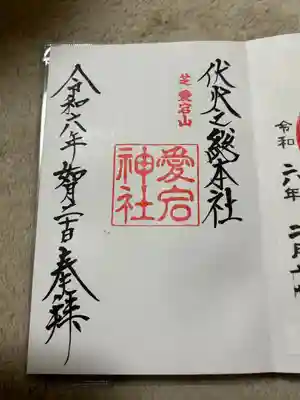 令和
六年 二月
伏火之総本社
芝 愛宕山
愛宕
神社
令和六年
奉拝